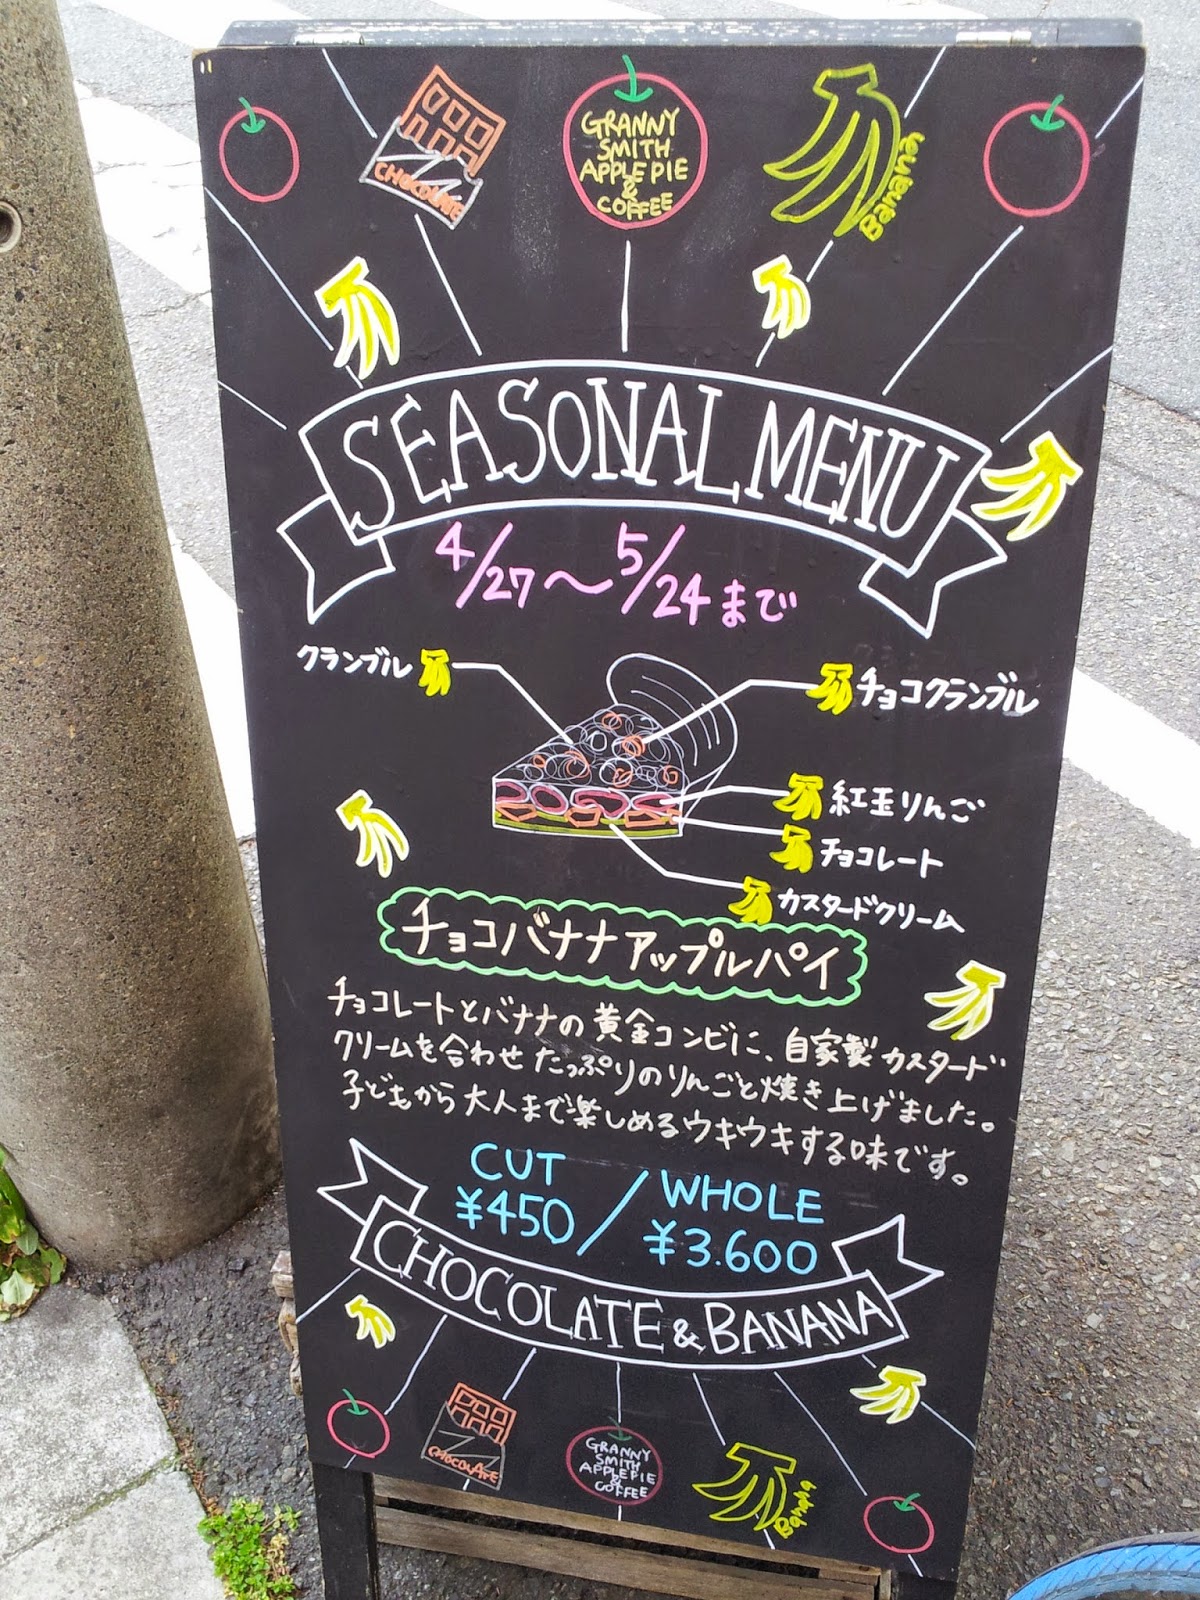 CHOCOLATE
GRANNY
SMITH
APPLE PIE
&
COFFEE
Banana
SEASONAL MENU
4/27〜5/24まで
クランブル
チョコクランブル
紅玉りんご
チョコレート
カスタードクリーム
チョコバナナアップルパイ
チョコレートとバナナの黄金コンビに、自家製カスタード
クリームを合わせたっぷりのりんごと焼き上げました。
子どもから大人まで楽しめるウキウキする味です。
CUT / WHOLE
¥450 ¥3.600
CHOCOLATE & BANANA
CHOCOLATE
GRANNY
SMITH
APPLE PIE
&
COFFEE
Banana